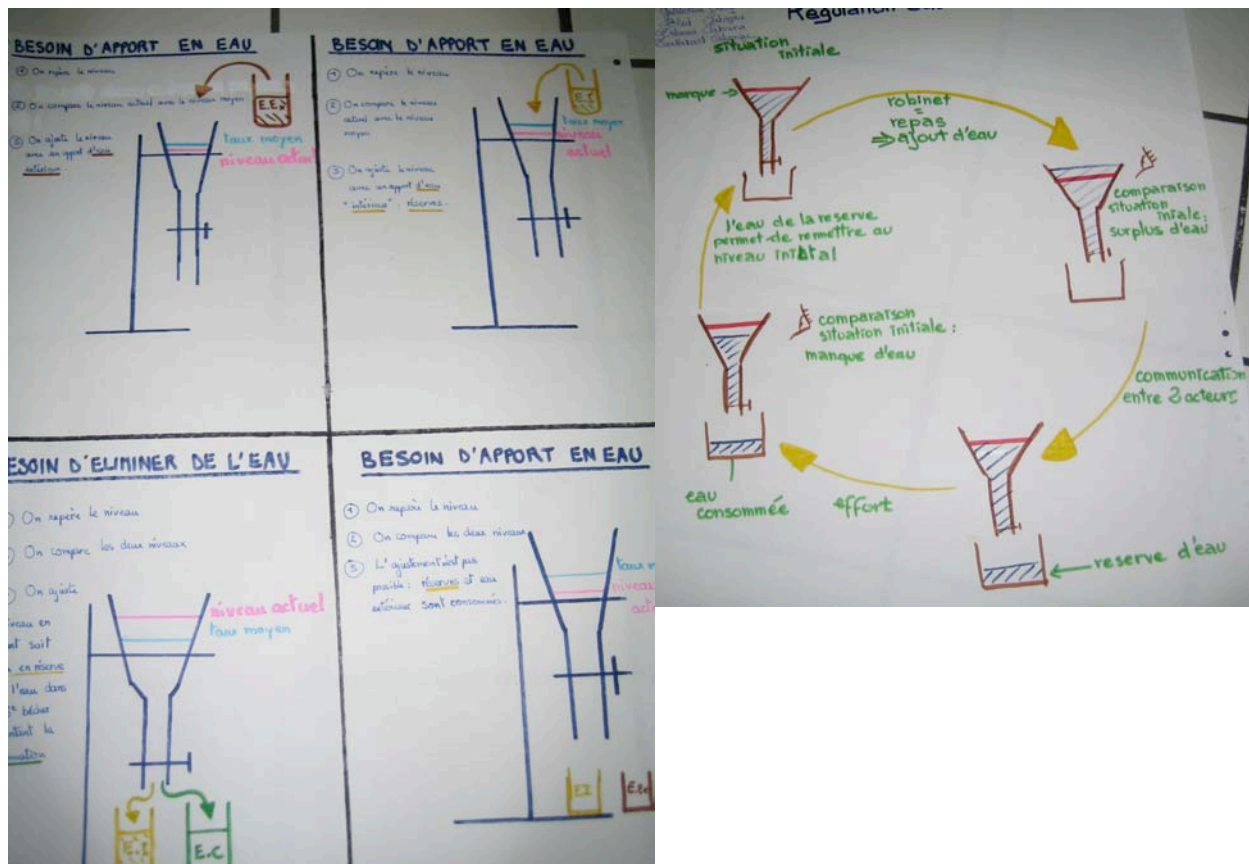 BESOIN D'APPORT EN EAU
① On repère le niveau
② On compare le niveau actuel avec le niveau moyen
③ On ajuste le niveau
avec un apport d'eau
extérieur
E.Ex
taux moyen
niveau actuel
BESOIN D'APPORT EN EAU
① On repère le niveau
② On compare le niveau
actuel avec le niveau
moyen
③ On ajuste le niveau
avec un apport d'eau
"intérieur" : réserves.
E.I
taux moyen
niveau
actuel
ESOIN D'ELIMINER DE L'EAU
On repère le niveau
On compare les deux niveaux
On ajuste
iveau en
nt soit
en réserve
l'eau dans
bécher
ntant la
mation
niveau actuel
taux moyen
E.I
E.C
BESOIN D'APPORT EN EAU
① On repère le niveau
② On compare les deux niveaux
③ L'ajustement n'est pas
possible : réserves et eau
extérieur sont consommés.
taux m
niveau
act
E.I
E.Ex
Regulation
situation
initiale
marque
robinet
=
repas
⇒ ajout d'eau
comparaison
situation
iniale:
surplus d'eau
communication
entre 2 acteurs
reserve d'eau
effort
eau
consommée
comparaison
situation initiale :
manque d'eau
l'eau de la reserve
permet de remettre au
niveau initial